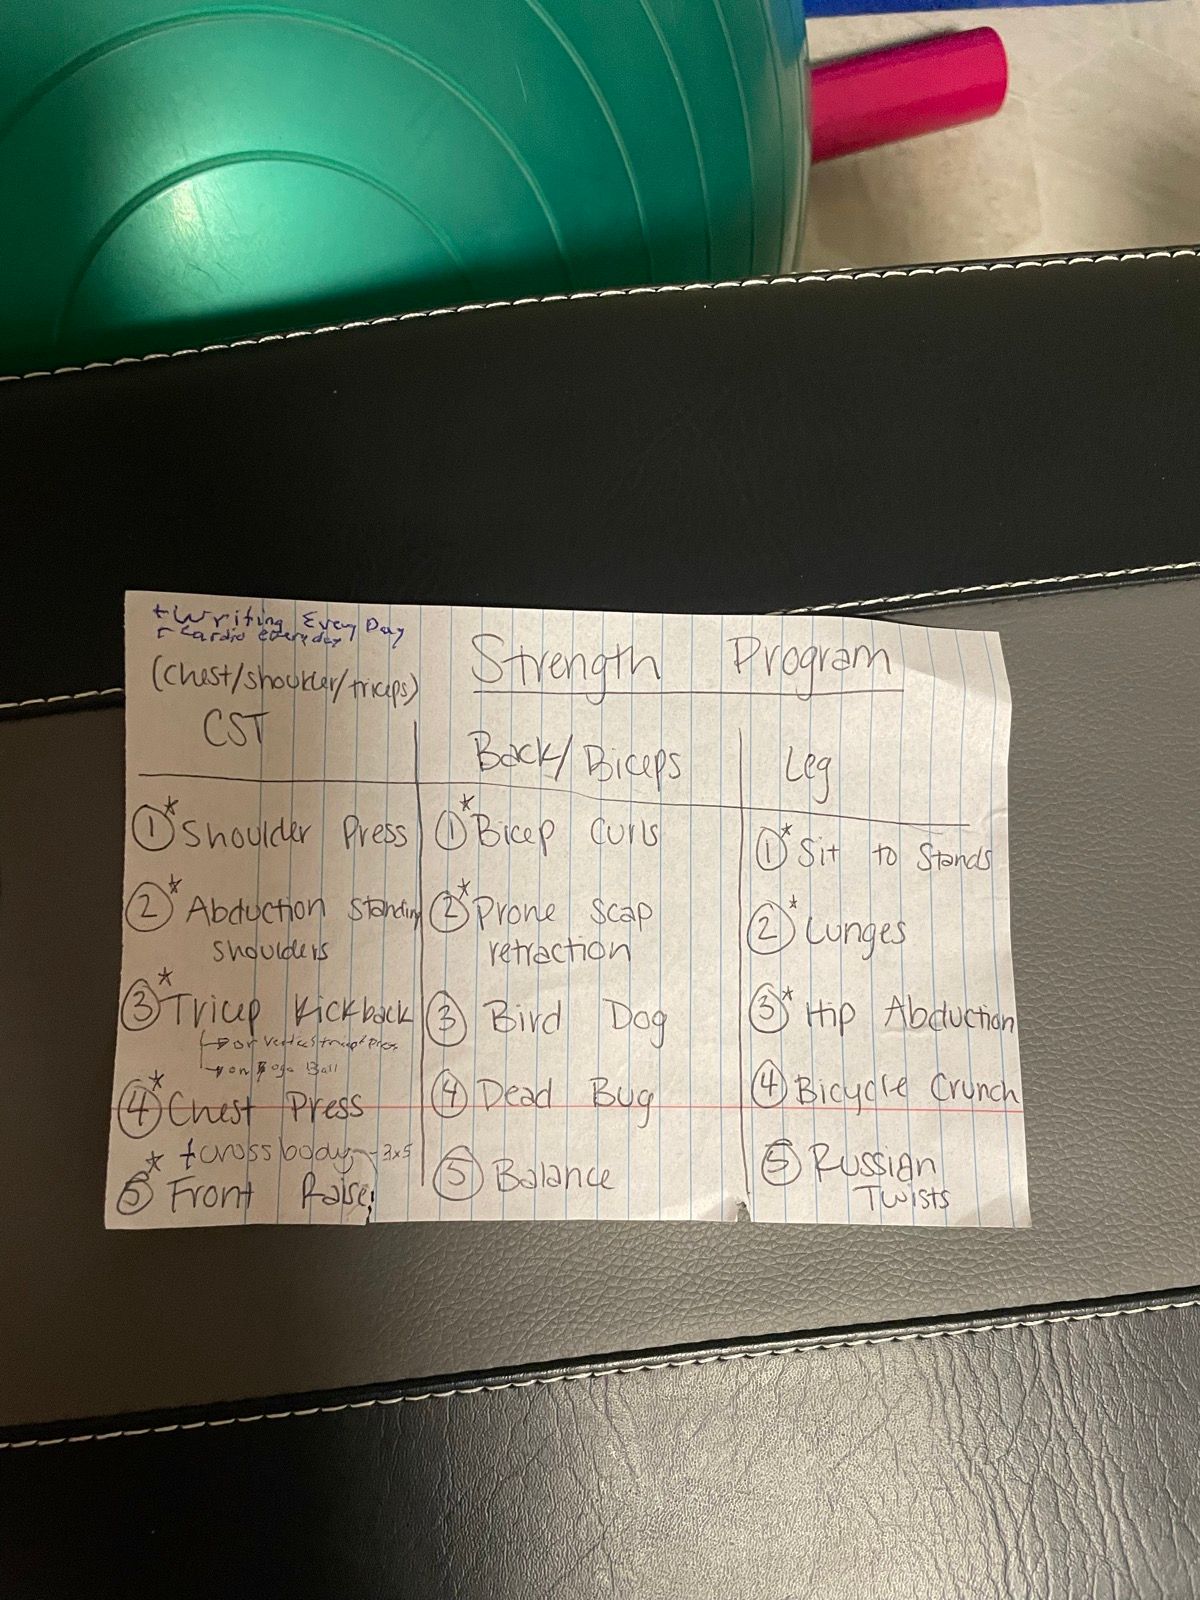 + Writing Every Day
+ Cardio everyday
Strength Program
(Chest/shoulder/triceps)
CST
① * Shoulder Press
② * Abduction standing
shoulders
③ * Tricep Kickback
→ or
→ on Yoga Ball
④ * Chest Press
+ cross body - 3x5
⑤ * Front Raise
Back/Biceps
① * Bicep Curls
② * Prone Scap
retraction
③ Bird Dog
④ Dead Bug
⑤ Balance
Leg
① * Sit to Stands
② * Lunges
③ * Hip Abduction
④ Bicycle Crunch
⑤ Russian
Twists